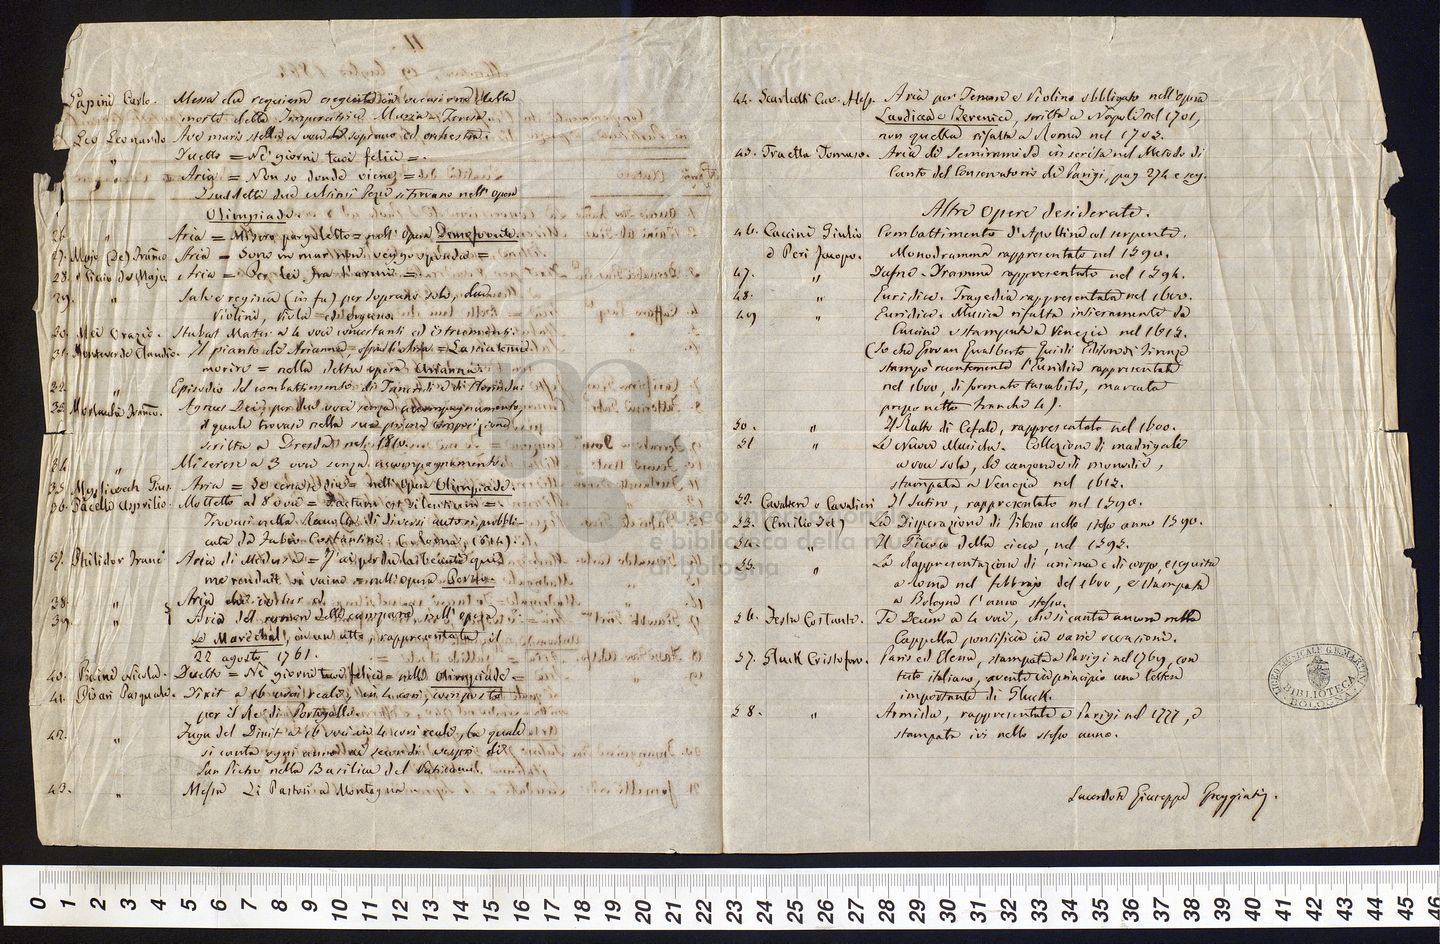 Lapini Carlo. Messa da requiem eseguita in occasione della
morte della Imperatrice Maria Teresa.
Leo Leonardo Ave maris stella a voce di soprano ed orchestra.
" Duetto = Ne' giorni tuoi felici =.
" Aria = Non so donde viene =
I suddetti due ultimi Pezzi si trovano nell'opera
Olimpiade.
26. " Aria = Misero pargoletto = nell'opera Demofoonte.
27. Majo (De) Franco Aria =
28. Ciccio de Majo. Aria = Per lei fra l'armi =.
29. " Salve regina (in fa) per soprano solo, due
Violini, Viola ed organo.
30. Mei Orazio. Stabat Mater a 4 voci concertanti ed istrumenti.
31. Monteverde Claudio. Il pianto di Arianna, ossia l'Aria = Lasciatemi
morire = nella detta opera Arianna.
32. " Episodio del combattimento di Tancredi e di Clorinda.
33. Morlacchi Franco. Agnus Dei, per due voci senza accompagnamento,
il quale trovasi nella sua prima composizione
scritta a Dresda nel 1810.
34. " Miserere a 3 voci senza accompagnamento.
35. Mysliwech Gius. Aria = Se cerca, se dice = nell'opera Olimpiade.
36. Pacelli Asprilio. Mottetto al 8 voci = Factum est silentium =.
Trovasi nella Raccolta di diversi autori pubbli-
cata da Fabio Costantini (Roma, 1614).
37. Philidor Franc. Aria di Medusa = J'ai perdu la beauté qui
me rendait si vaine = nell'opera Persée.
38. " Aria
39. " Aria del rumore delle campane, nell'opera
Le Maréchal, in un atto, rappresentata il
22 agosto 1761.
40. Piccini Nicola. Duetto = Ne' giorni tuoi felici = nell'Olimpiade =
41. Pisari Pasquale. Dixit a 16 voci reali, in 4 cori, composto
per il Re di Portogallo.
42. " Fuga del Dixit a 16 voci in 4 cori reali, la quale
si canta ogni anno ai secondi vesperi di
San Pietro nella Basilica del Vaticano.
43. " Messa Li Pastori a Montagna
44. Scarlatti Cav. Aless. Aria per Tenore e Violino obbligato nell'opera
Laodicea e Berenice, scritta a Napoli nel 1701,
non quella rifatta a Roma nel 1705.
45. Traetta Tomaso. Aria di Semiramide inserita nel Metodo di
Canto del Conservatorio di Parigi, pag. 274 e seg.
Altre opere desiderate.
46. Caccini Giulio Combattimento d'Apolline col serpente.
e Peri Jacopo. Monodramma rappresentato nel 1590.
47. " Dafne. Dramma rappresentato nel 1594.
48. " Euridice. Tragedia rappresentata nel 1600.
49 " Euridice. Musica rifatta interamente da
Caccini e stampata a Venezia nel 1615.
(So che Giovan Gualberto Guidi Editore di Firenze
stampò recentemente l'Euridice rappresentata
nel 1600, di formato tascabile, marcata
prezzo netto franchi 4).
50. " Il Ratto di Cefalo, rappresentato nel 1600.
51 " Le Nuove Musiche. Collezione di madrigali
a voce sola, di canzoni e di monodie,
stampata a Venezia nel 1615.
52. Cavaliere o Cavalieri Il Satiro, rappresentato nel 1590.
53. (Emilio Del) La Disperazione di Fileno nello stesso anno 1590.
54. " Il Giuoco della cieca, nel 1595.
55. " La Rappresentazione di anima e di corpo, eseguita
a Roma nel febbrajo del 1600, e stampata
a Bologna l'anno stesso.
56. Festa Costanzo. Te Deum a 4 voci, che si canta ancora nella
Cappella pontificia in varie occasioni.
57. Gluck Cristoforo. Paris ed Elena, stampata a Parigi nel 1769, con
testo italiano, avente in principio una lettera
importante di Gluck.
58. " Armida, rappresentata a Parigi nel 1777, e
stampata ivi nello stesso anno.
Sacerdote Giuseppe Greggiati.
LICEO MUSICALE G.B. MARTINI
BIBLIOTECA
BOLOGNA
museo internazionale
e biblioteca della musica
di bologna
0 1 2 3 4 5 6 7 8 9 10 11 12 13 14 15 16 17 18 19 20 21 22 23 24 25 26 27 28 29 30 31 32 33 34 35 36 37 38 39 40 41 42 43 44 45 46